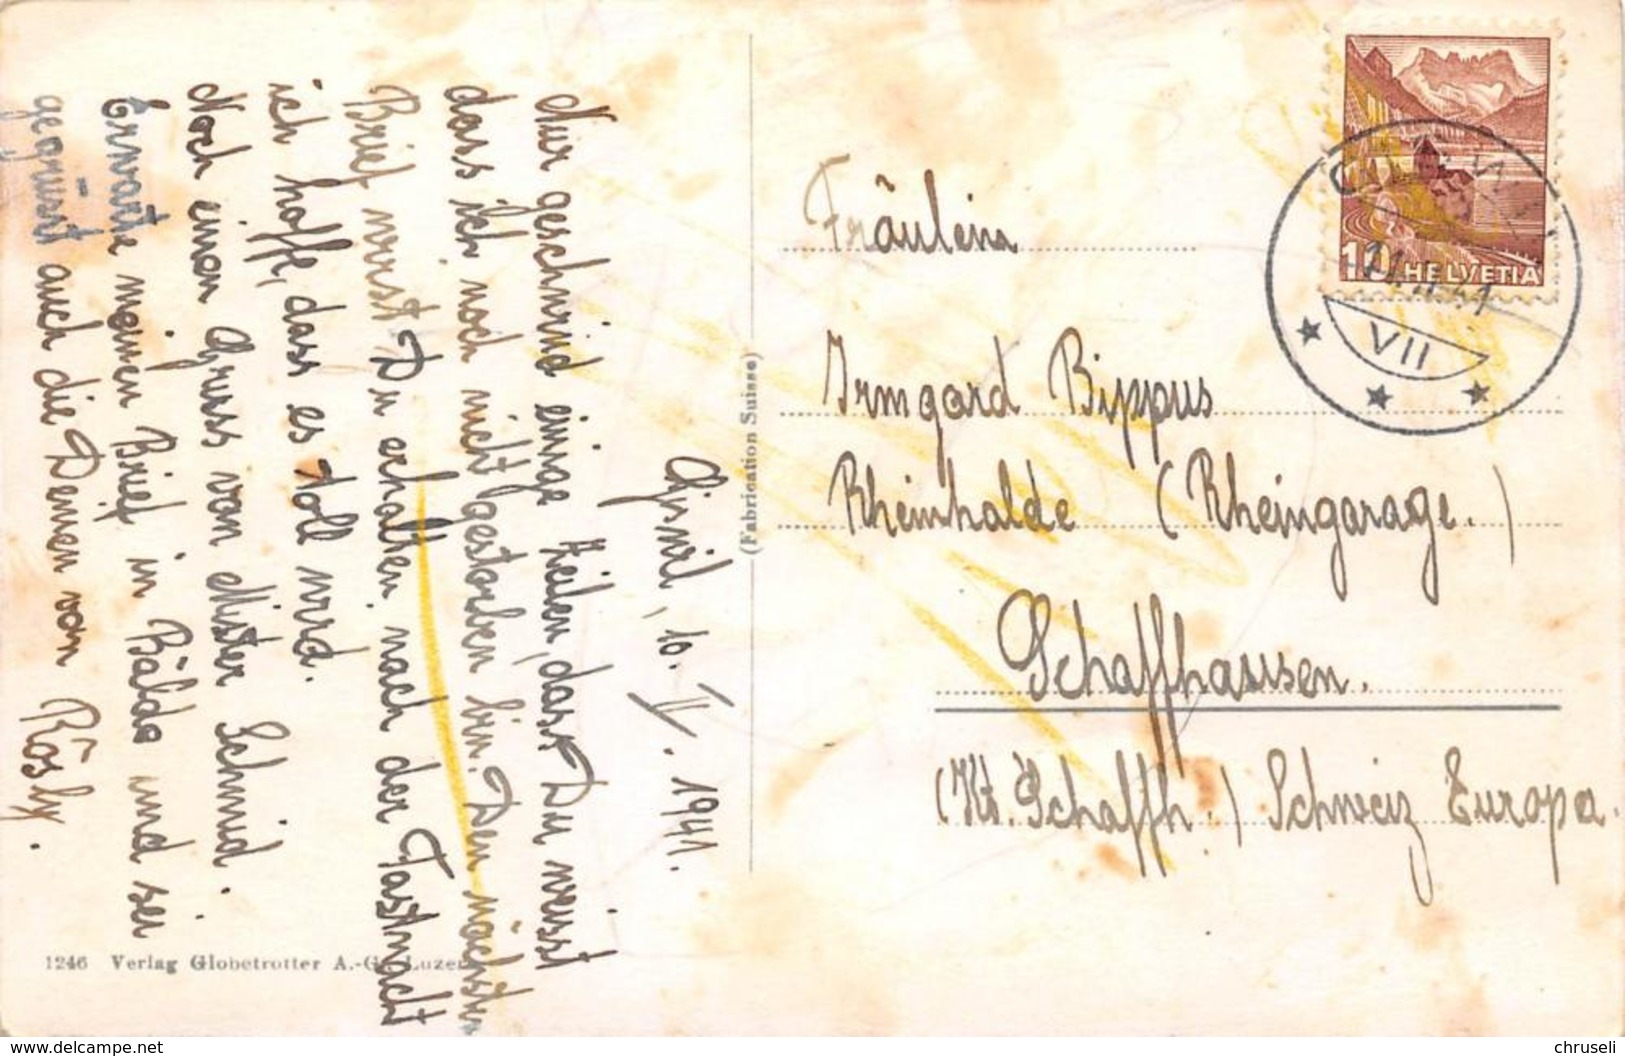 Giswil, 10. II. 1941.
Nur geschwid einige Zeilen, dass Du weisst
dass ich noch nicht gestorben bin. Den nächsten
Brief wirst Du erhalten nach der Fastnacht
ich hoffe, dass es toll wird.
Noch einen Gruss von Mister Schmid.
Erwarte meinen Brief in Bälde und sei
gegrüsst auch die Deinen von Rösly.
Fräulein
Irmgard Bippus
Rheinhalde (Rheingarage.)
Schaffhausen.
(Kt. Schaffh.) Schweiz Europa.
10 HELVETIA
11.II.41
VII
(Fabrication Suisse)
1246 Verlag Globetrotter A.-G. Luzern
www.delcampe.net
chruseli